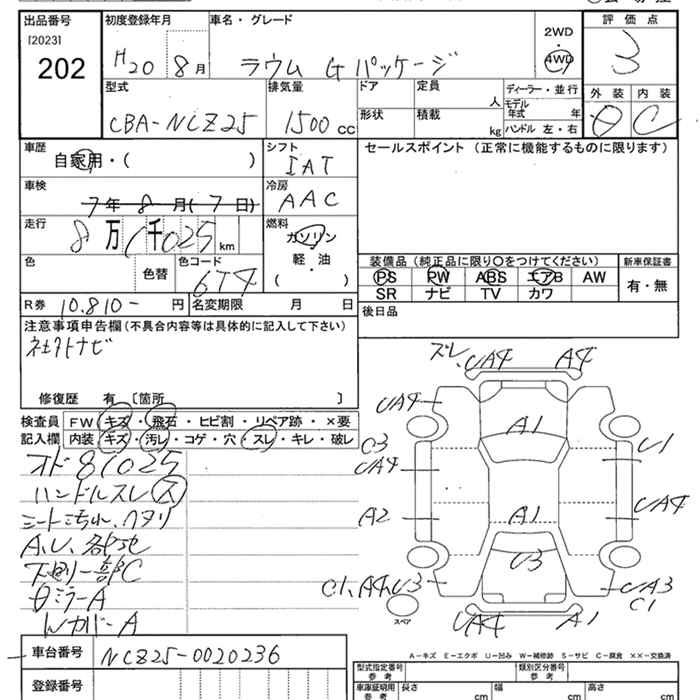 出品番号
[2023]
202
初度登録年月
H20 8月
車名・グレード
ラウム Gパッケージ
2WD
・
4WD
評価点
3
型式
CBA-NCZ25
排気量
1500 cc
ドア
形状
定員 人
積載 kg
ディーラー・並行
モデル年式 年
ハンドル 左・右
外装
内装
C
車歴
自家用・( )
シフト
IAT
セールスポイント (正常に機能するものに限ります)
車検
7年8月(7日)
冷房
AAC
走行
8万1千025km
燃料
ガソリン
・
軽油
・
( )
色
色替
色コード
6T4
装備品(純正品に限り〇をつけてください)
PS PW ABS エアB AW
SR ナビ TV カワ
新車保証書
有・無
R券 10.810- 円
名変期限 月 日
後日品
注意事項申告欄(不具合内容等は具体的に記入して下さい)
社外ナビ
修復歴 有〔箇所 〕
検査員記入欄
FW キズ・飛石・ヒビ割・リペア跡・×要
内装 キズ・汚レ・コゲ・穴・スレ・キレ・破レ
オド81025
ハンドルスレ大
シートこうれ、ヘタリ
A,U,各部地
下廻り一部C
ミラーA
WカバーA
ズレ、UA4 A4
UA4
A1
C3
UA4
U1
A2
UA4
A1
U3
C1,A4,U3
UA3
C1
スペア
UA4 A1
A-キズ E-エクボ U-凹み W-補修跡 S-サビ C-腐食 ××-交換済
車台番号
NCZ25-0020236
登録番号
型式指定番号
参考
類別区分番号
参考
車庫証明用
参考
長さ cm
幅 cm
高さ cm